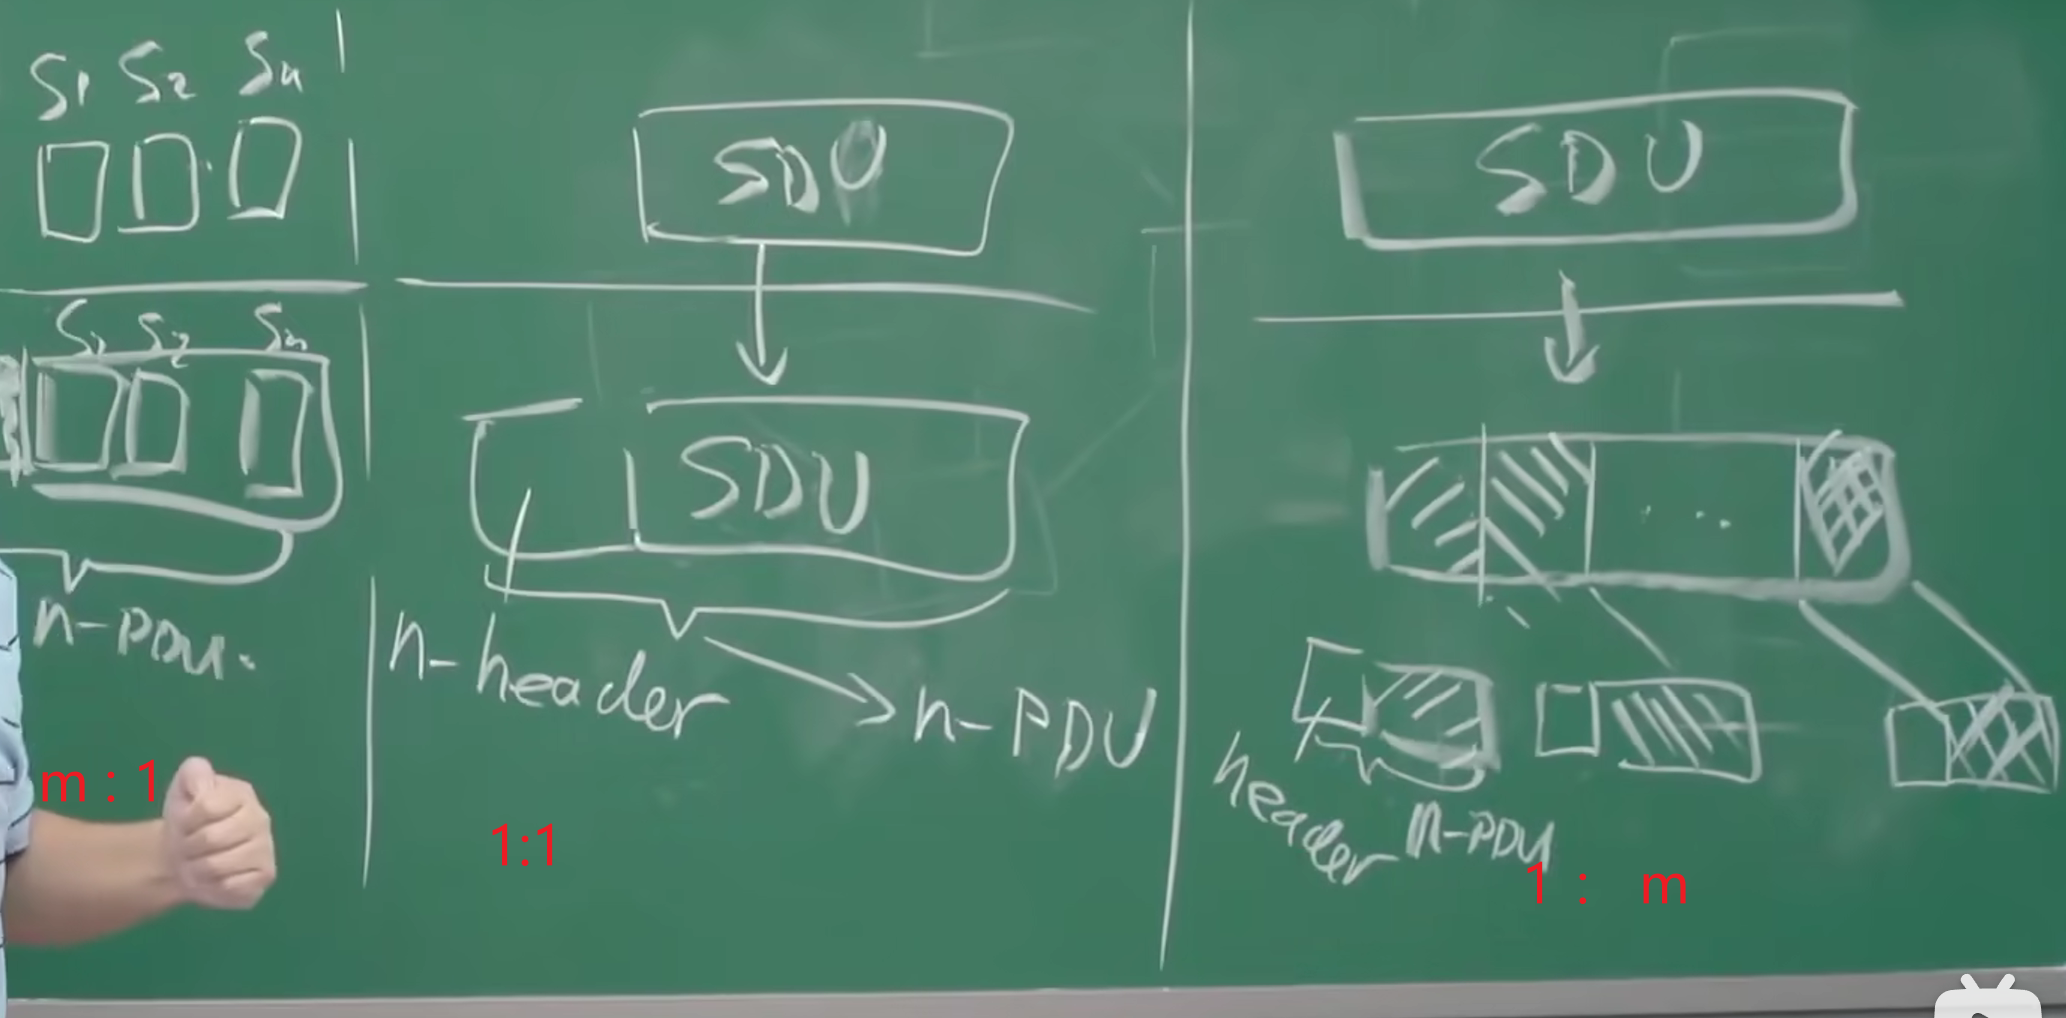 S1 S2 Sn
S1 S2 Sn
n-PDU.
m : 1
SDU
SDU
n-header
n-PDU
1:1
SDU
...
header
n-PDU
1 : m